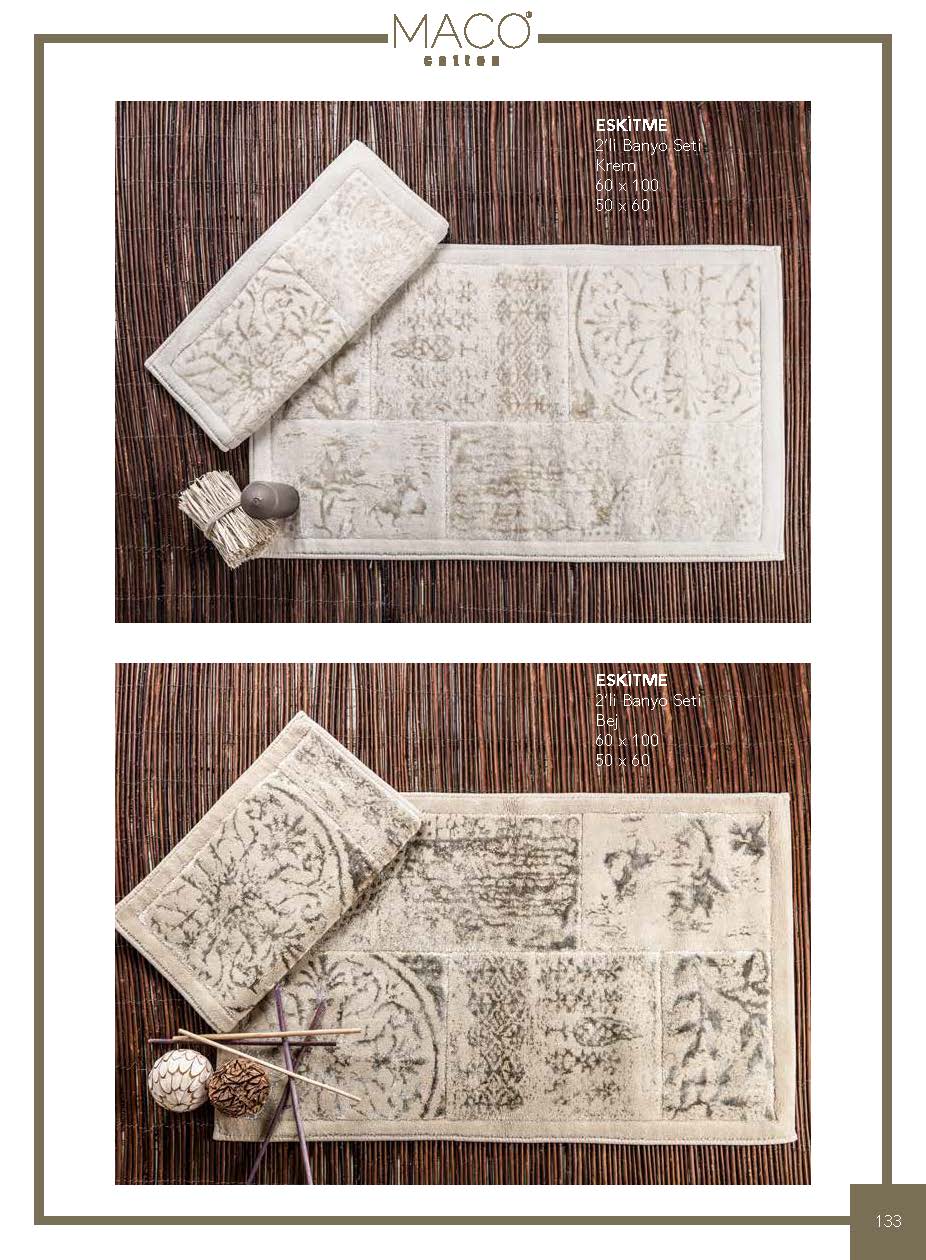 MACO
cotton
ESKİTME
2'li Banyo Seti
Krem
60 x 100
50 x 60
ESKİTME
2'li Banyo Seti
Bej
60 x 100
50 x 60
133